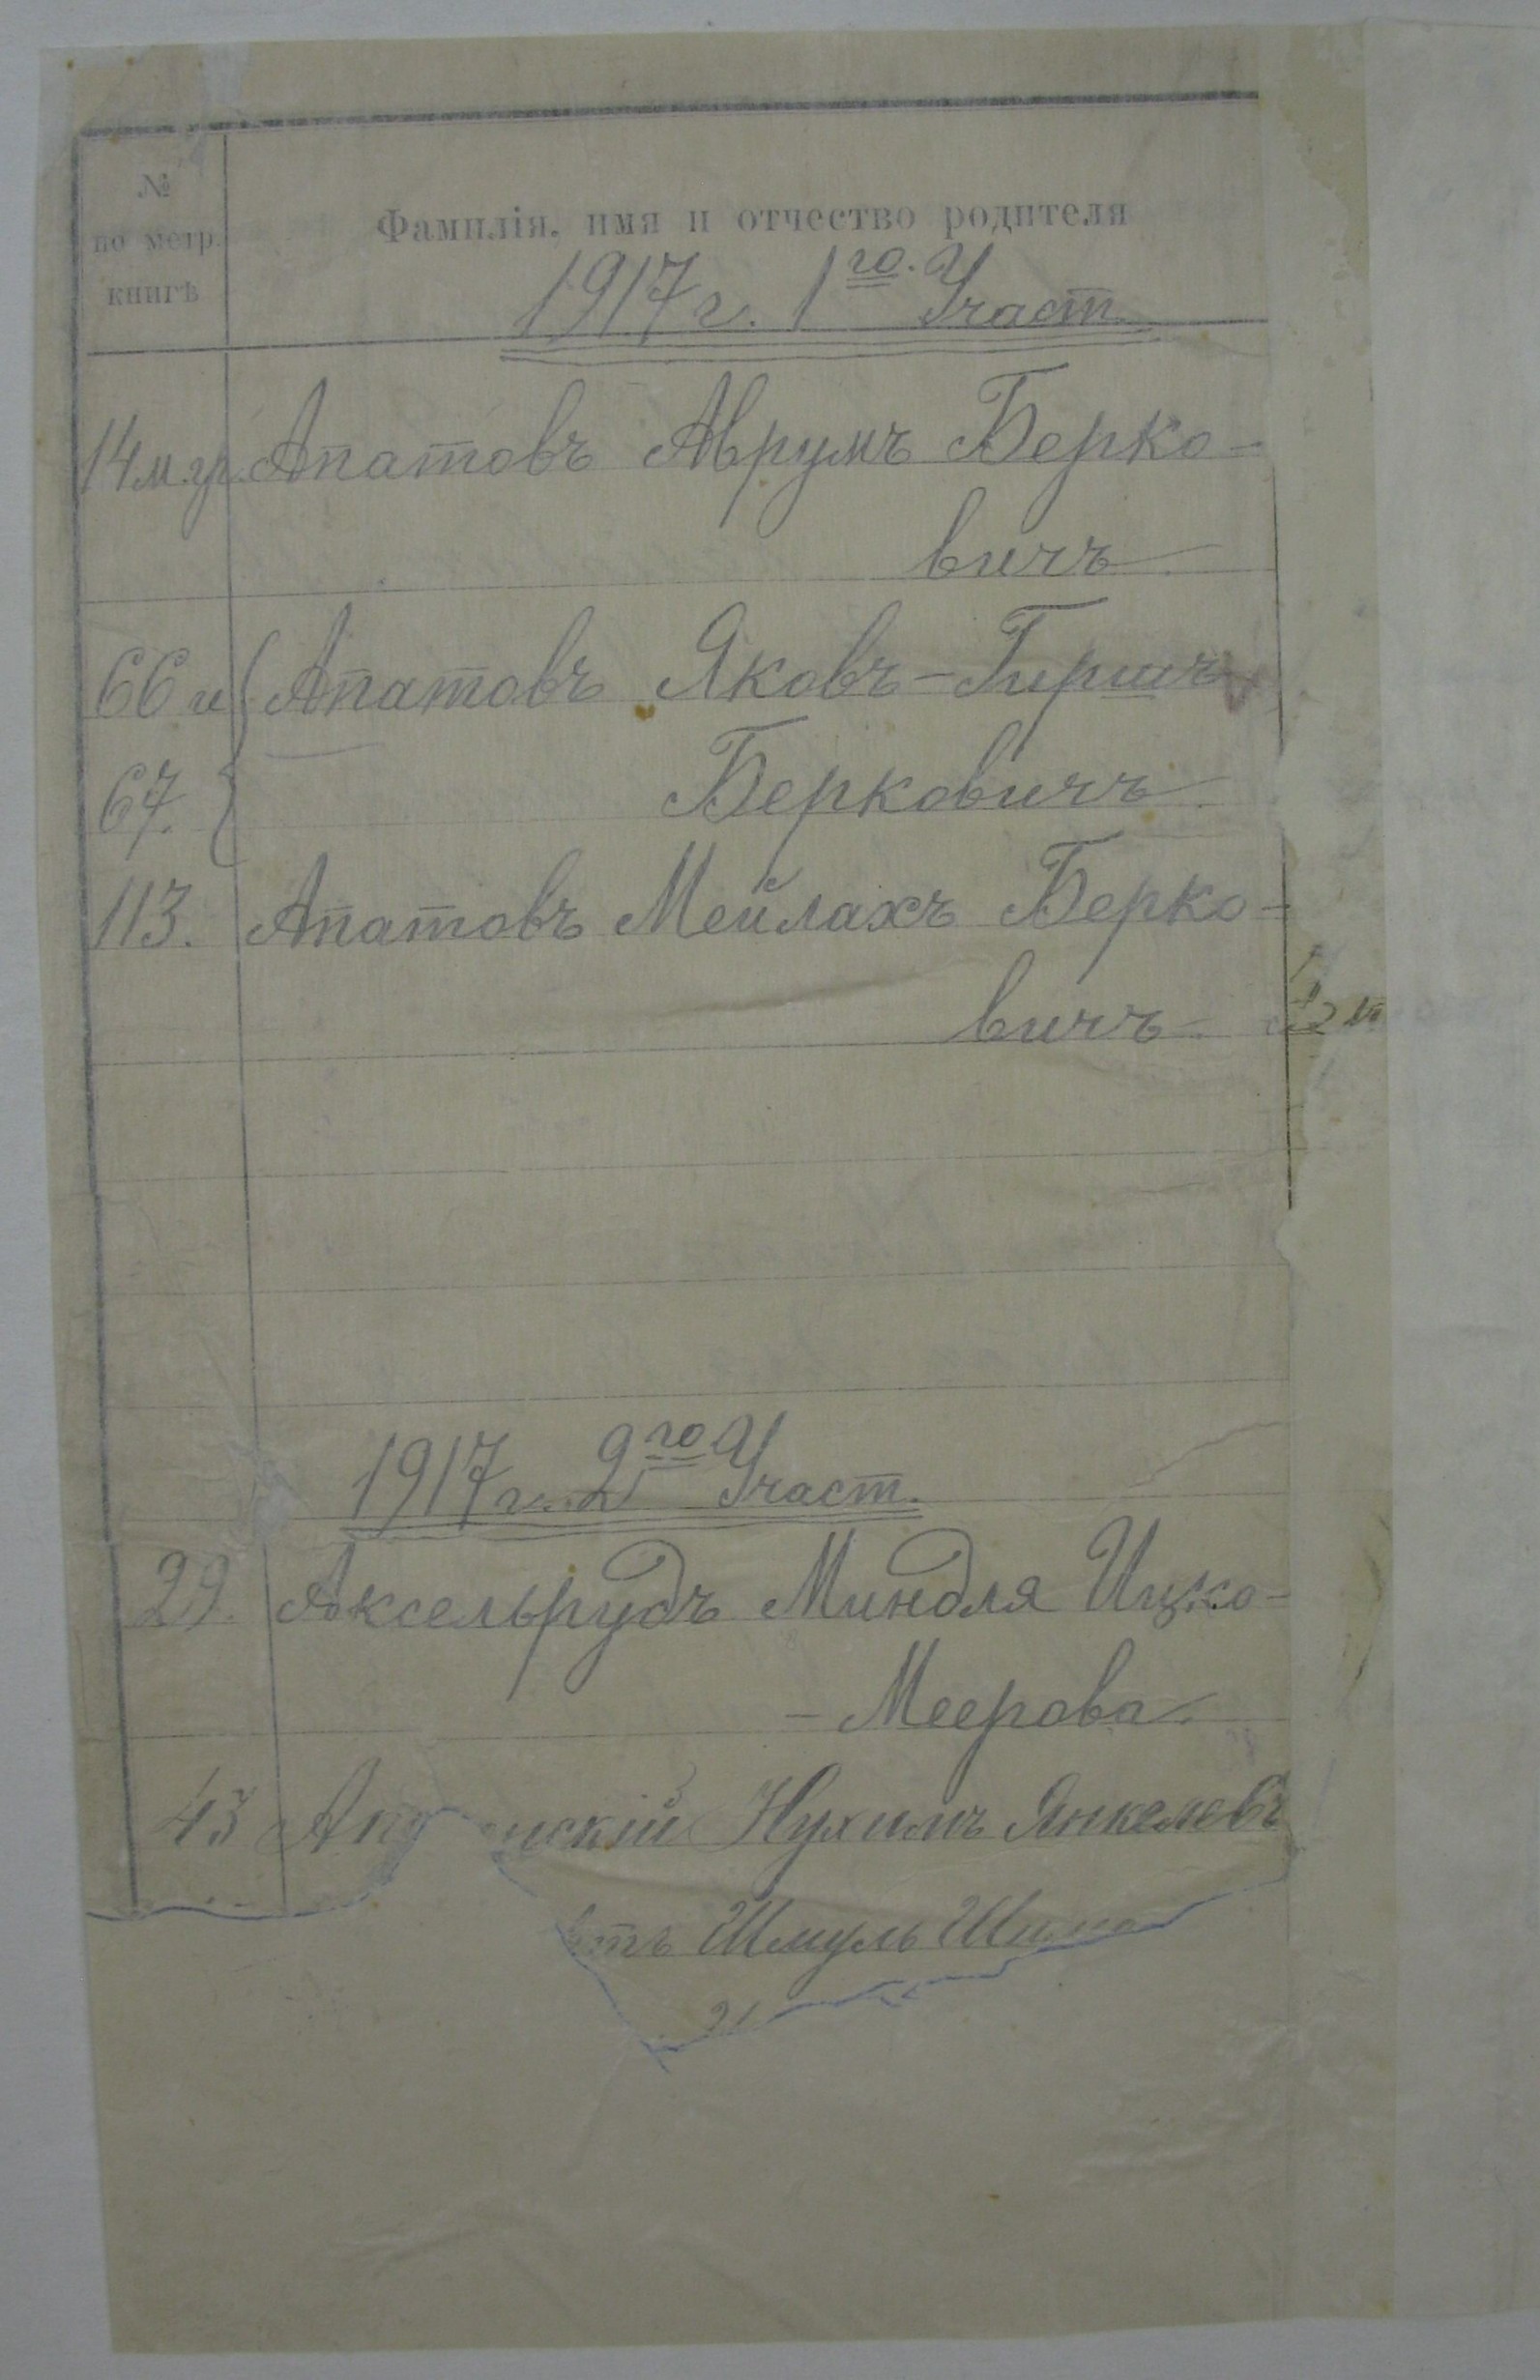 №
по метр.
книгѣ
Фамилія, имя и отчество родителя
1917 г. 1го. Участ.
14 Апатовъ Аврумъ Берко-
вичъ
66 и Апатовъ Яковъ-Гиршъ
67. Берковичъ.
113. Апатовъ Мейлахъ Берко-
вичъ
1917 г. 2го Участ.
29. Аксельрудъ Миндля Ицко-
- Меерова.
43 Нухимъ Янкелевъ
Шмуль